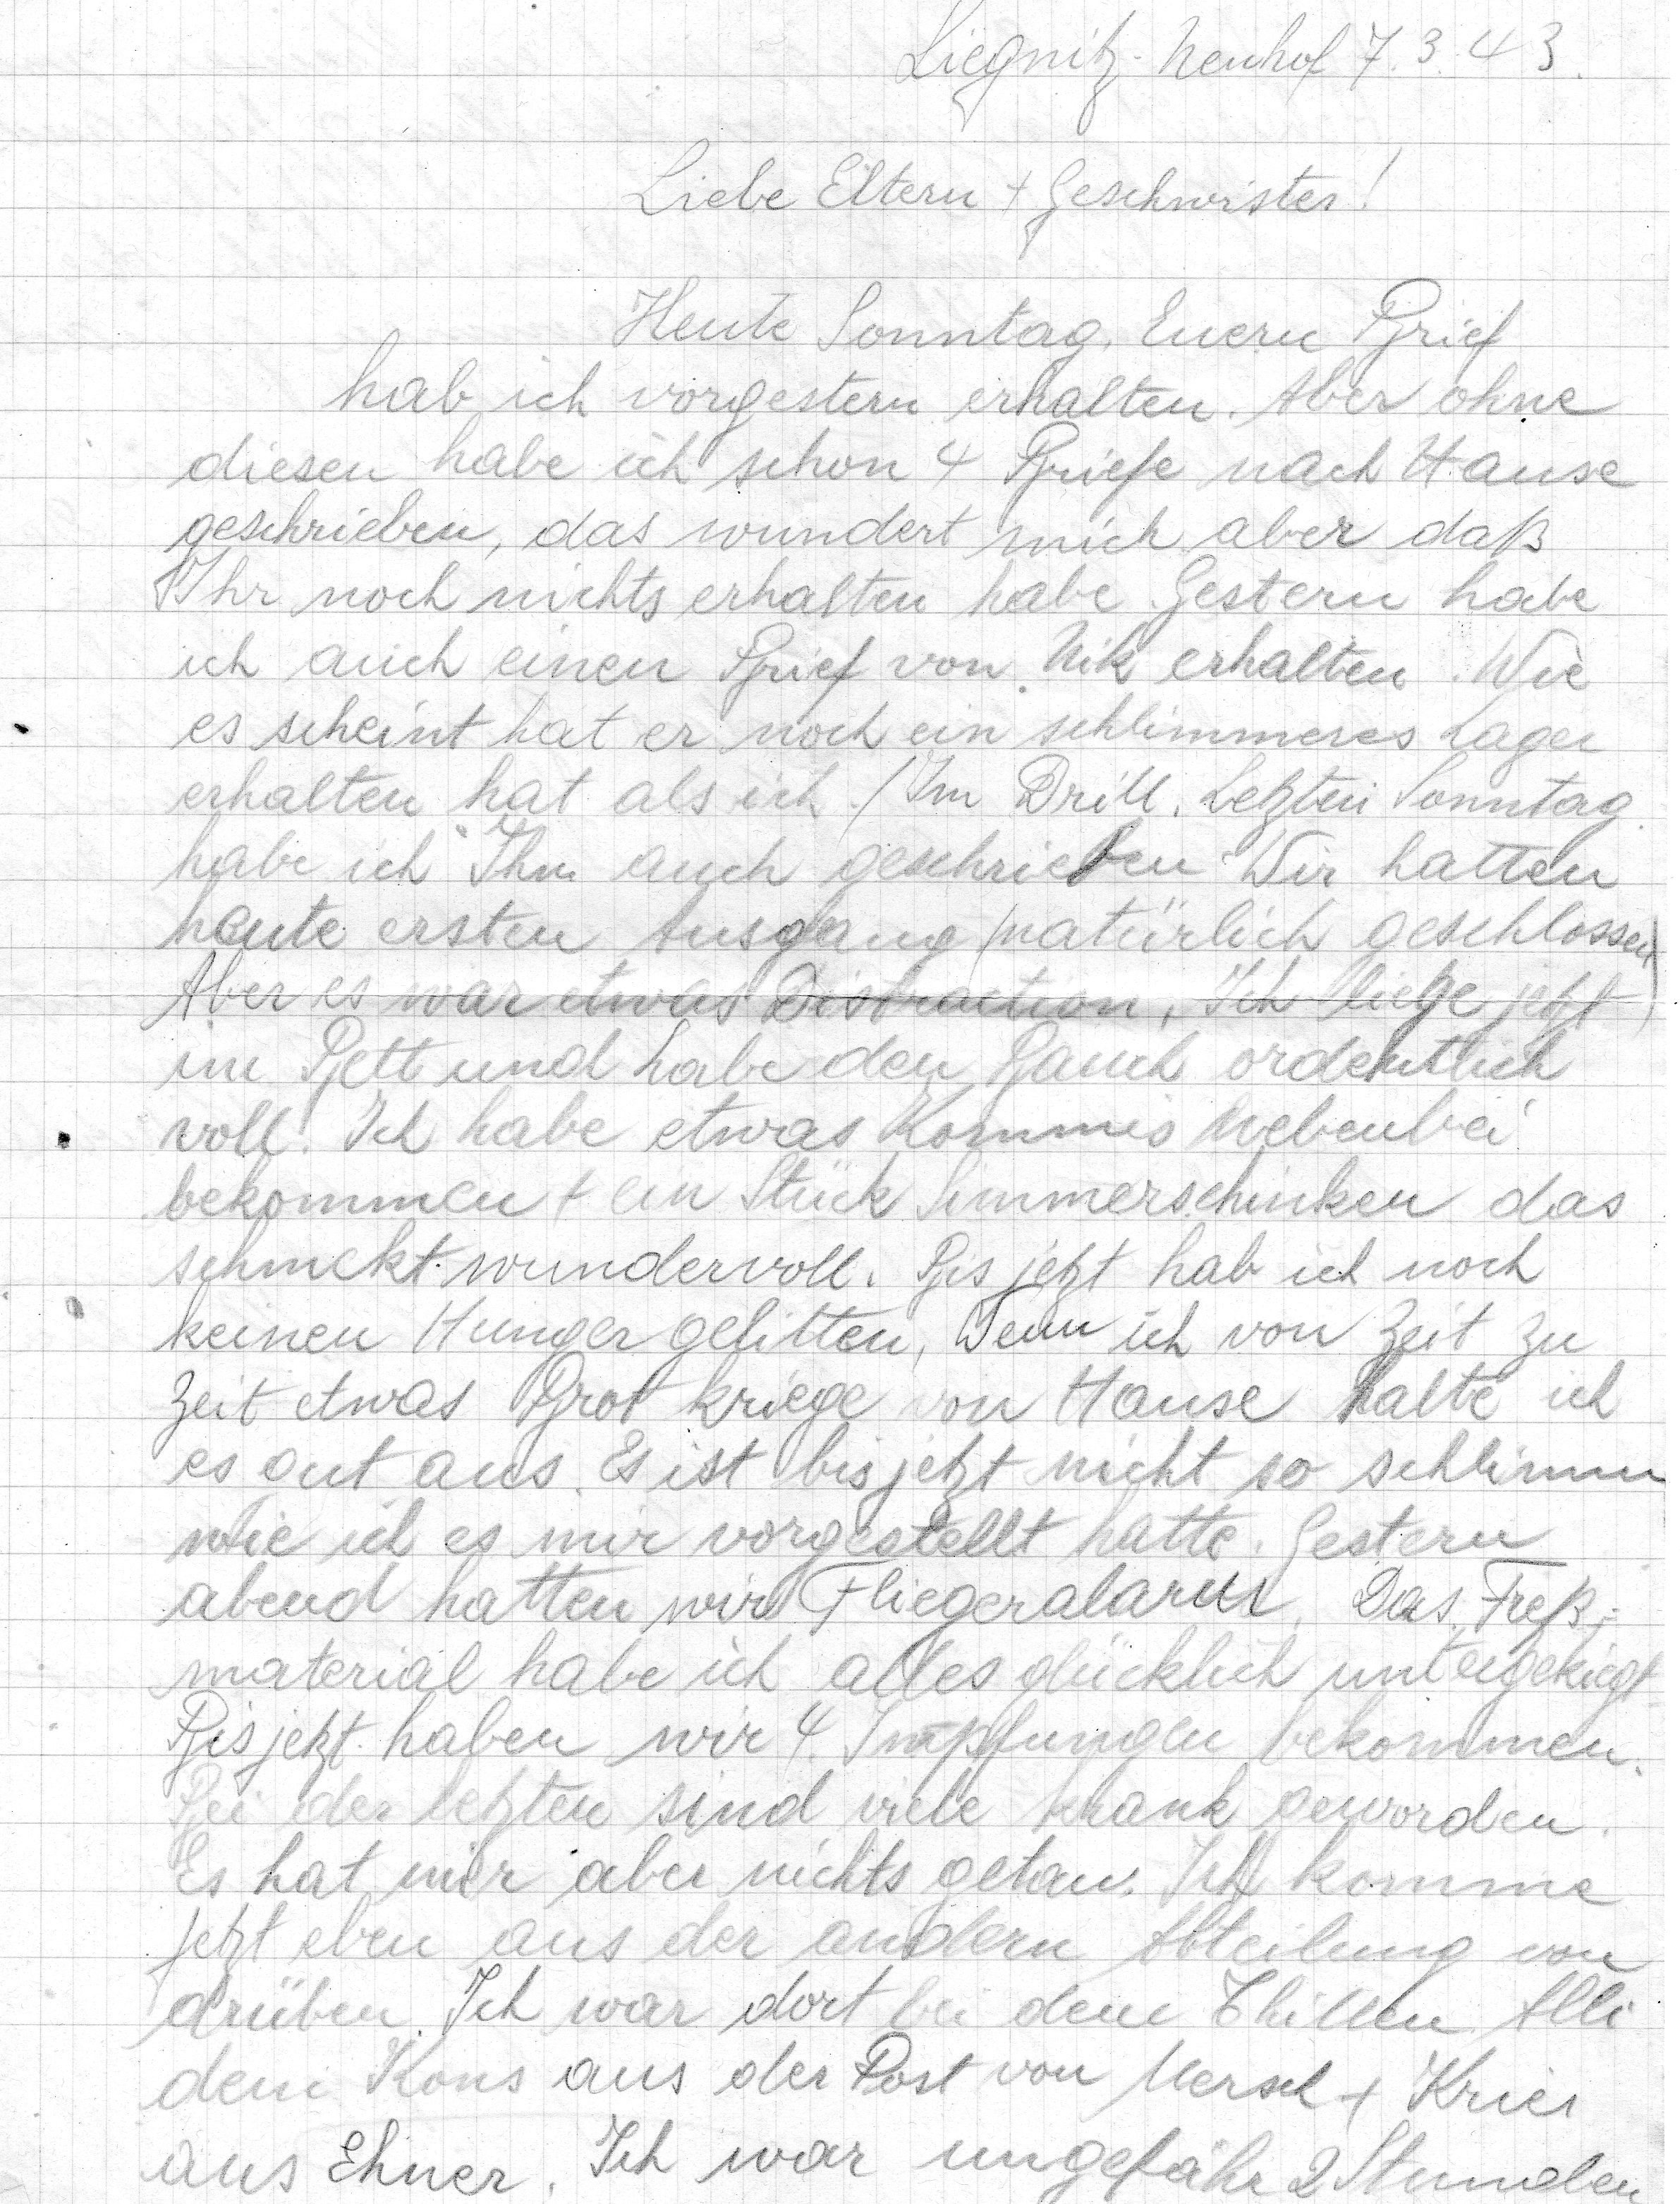 Liegnitz-Neuhof 7.3.43.
Liebe Eltern + Geschwister!
Heute Sonntag. Euern Brief
hab ich vorgestern erhalten. Aber ohne
diesen habe ich schon 4 Briefe nach Hause
geschrieben, das wundert mich aber daß
Ihr noch nichts erhalten habe. Gestern habe
ich auch einen Brief von Nik erhalten. Wie
es scheint hat er noch ein schlimmeres Lager
erhalten hat als ich. (Im Drill. Letzten Sonntag
habe ich Ihm auch geschrieben. Wir hatten
heute ersten Ausgang (natürlich geschlossen)
Aber es war etwas Distraction, Ich liege jetzt
im Bett und habe den Bauch ordentlich
voll. Ich habe etwas Kommis nebenbei
bekommen + ein Stück Simmerschinken das
schmekt wundervoll. Bis jetzt hab ich noch
keinen Hunger gelitten, Wenn ich von Zeit zu
Zeit etwas Brot kriege von Hause halte ich
es gut aus. Es ist bis jetzt nicht so schlimm
wie ich es mir vorgestellt hatte. Gestern
abend hatten wir Fliegeralarm. Das Freß-
material habe ich alles glücklich untergekiegt
Bis jetzt haben wir 4 Impfungen bekommen.
Bei der letzten sind viele krank geworden.
Es hat mir aber nichts getan. Ich komme
jetzt eben aus der andern Abteilung von
drüben. Ich war dort bei dem Thillen Alli
dem Kons aus der Post von Mersch + Krier
aus Ehner. Ich war ungefähr 2 Stunden